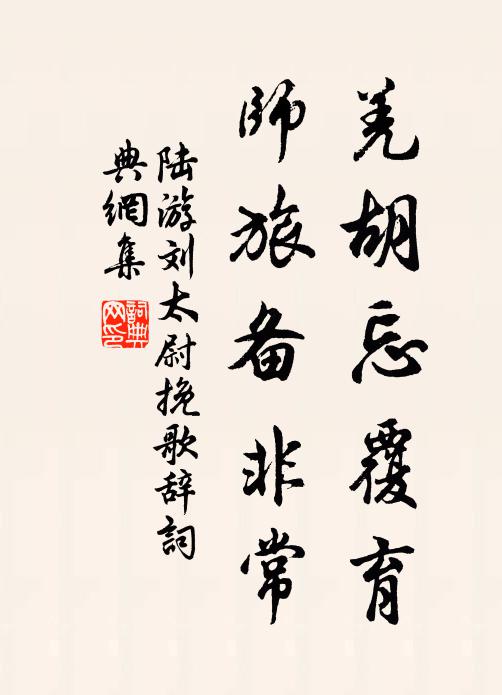 羌胡忘覆育
师旅备非常
陆游刘太尉挽歌辞詞
典網集
詞典
网印